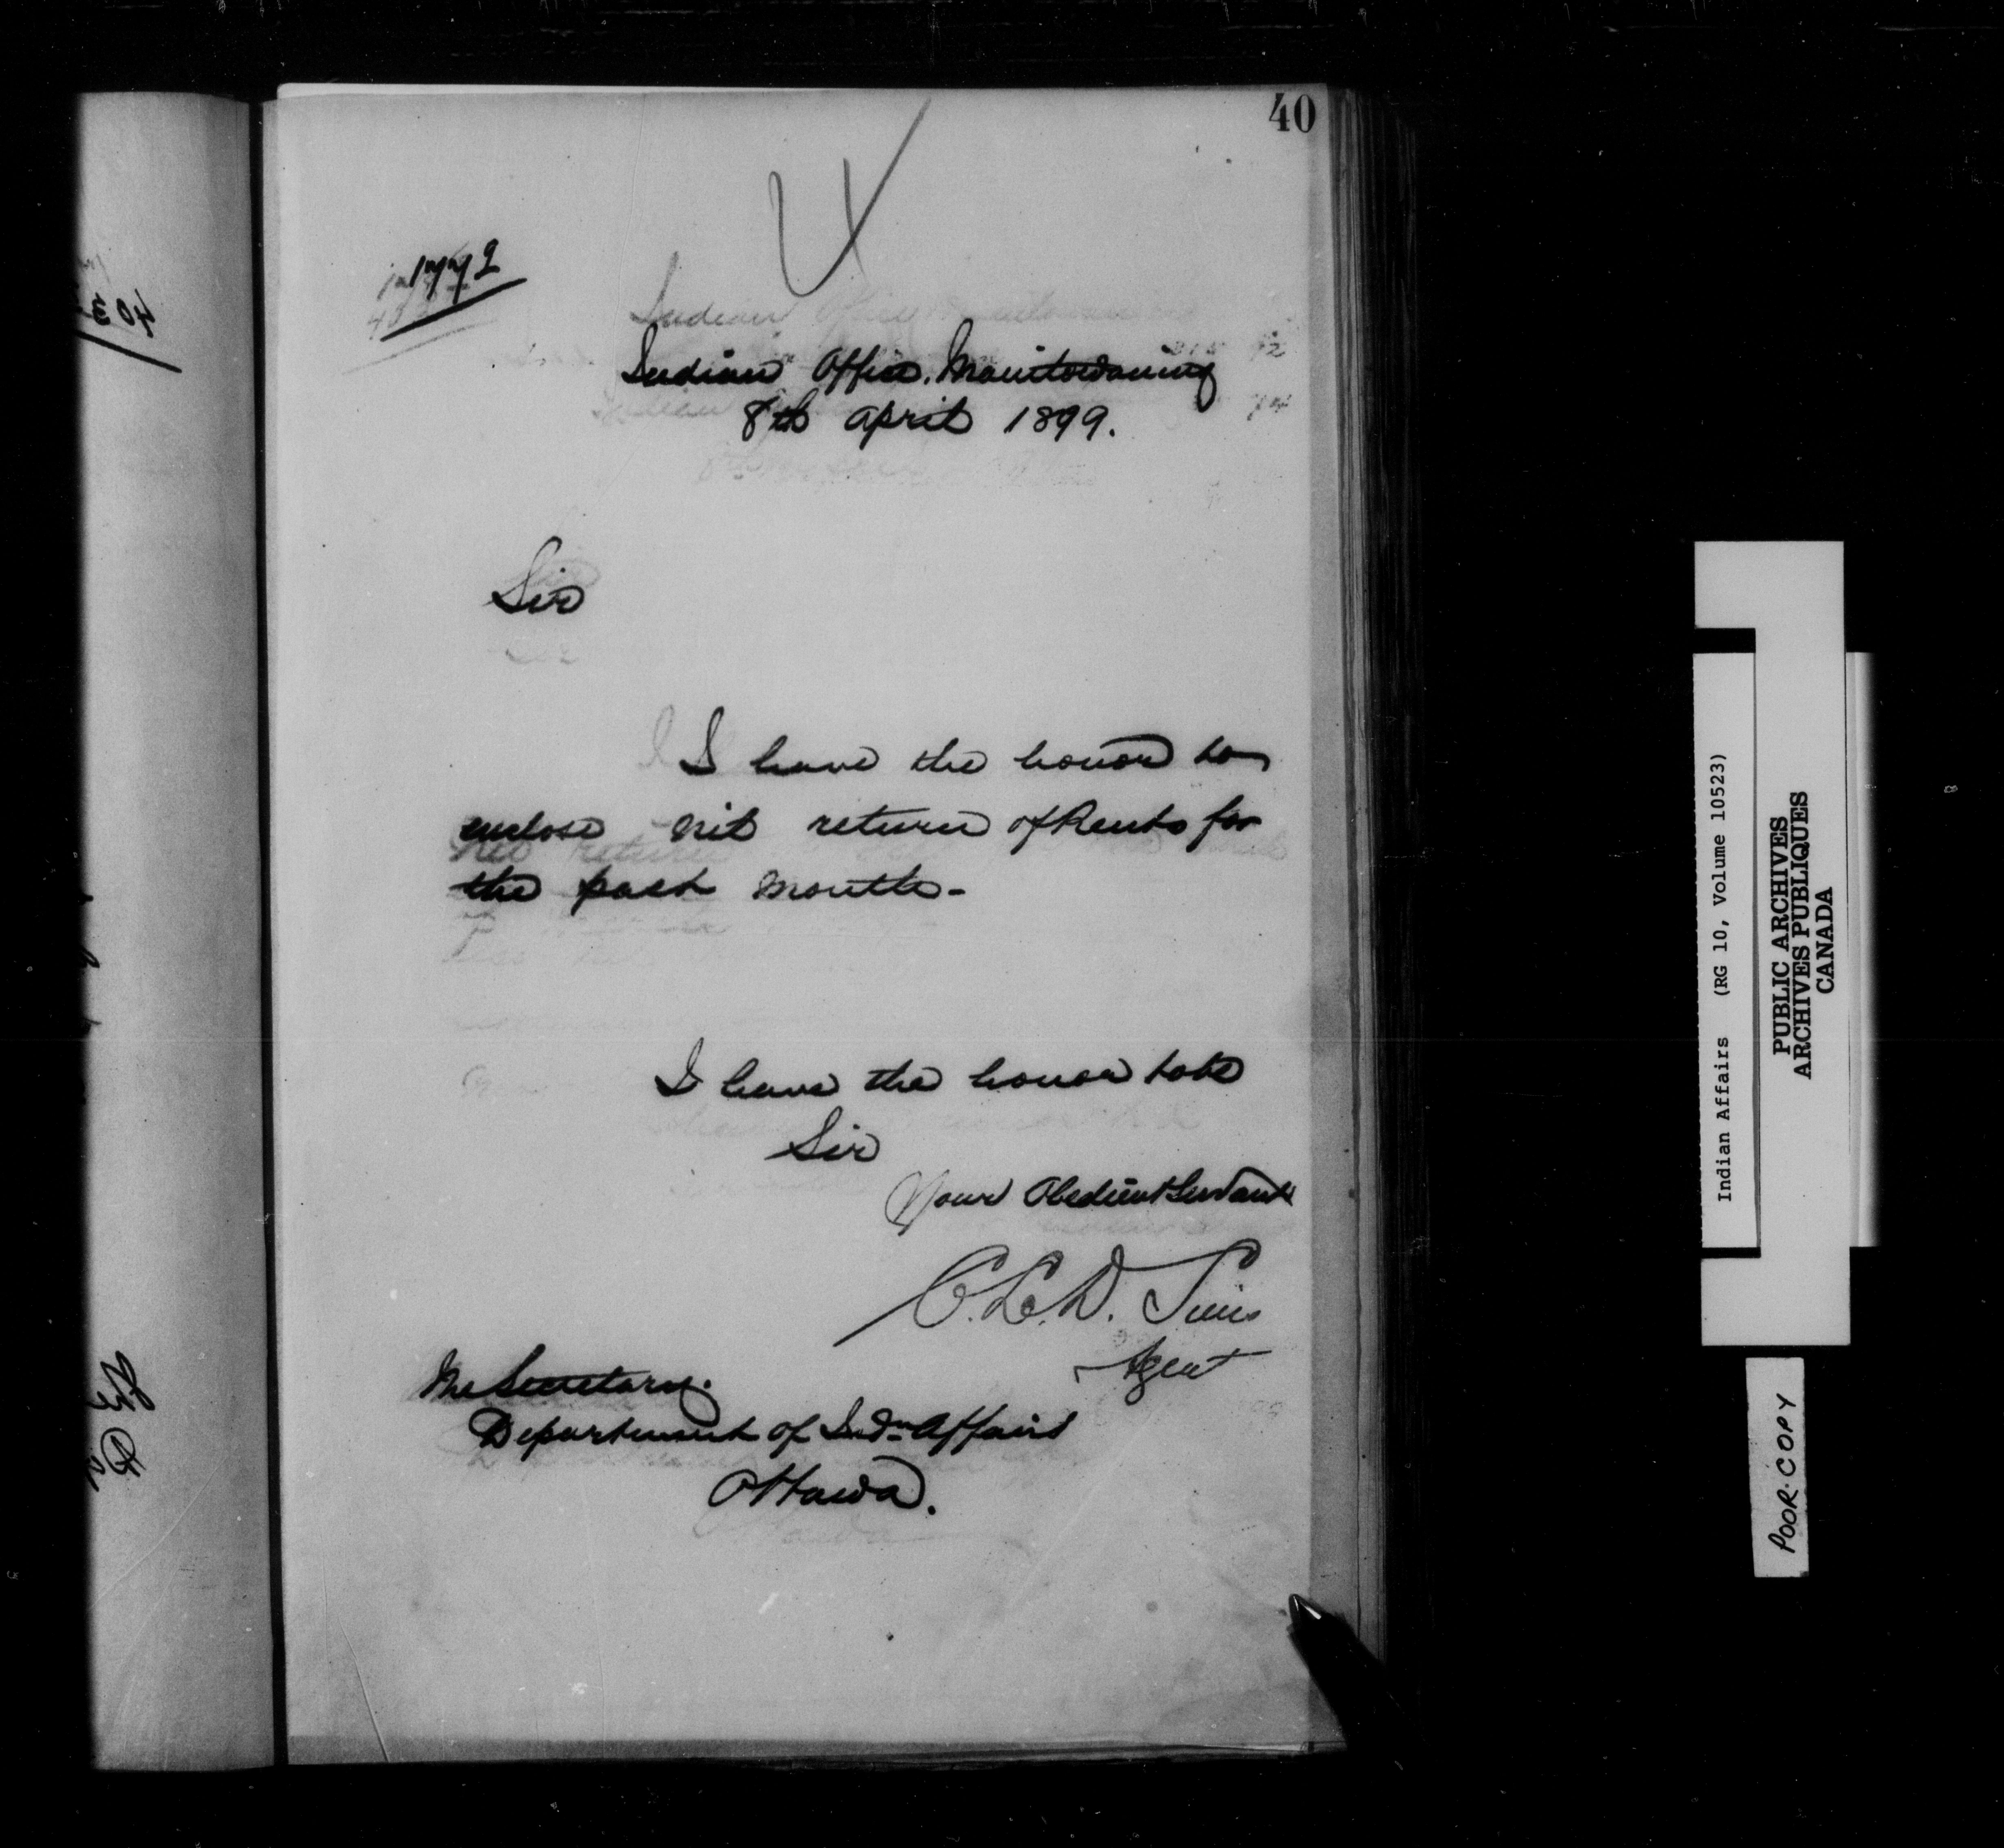 40
1772
Indian Office. Manitowaning
8th April 1899.
Sir
I have the honor to
enclose nil return of Rents for
the past month-
I have the honor to be
Sir
Your Obedient Servant
C.L.D. Sims
Agent
The Secretary.
Department of Indn Affairs
Ottawa.
Indian Affairs (RG 10, Volume 10523)
PUBLIC ARCHIVES
ARCHIVES PUBLIQUES
CANADA
POOR COPY